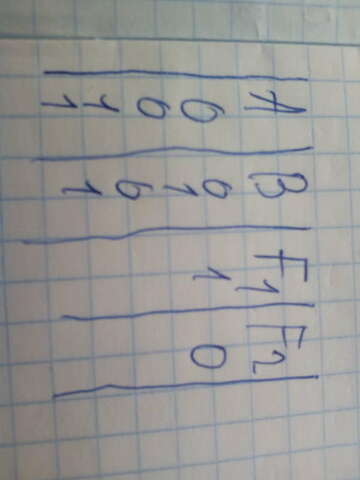 A B F1 F2
0 0 1 0
0 1
1 0
1 1